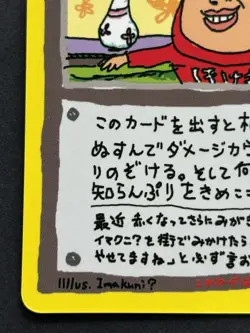 このカードを出すと
ぬすんでダメージカウ
りのぞける。そして何
知らんぷりをきめこ
最近 赤くなってさらにみがき
イマクニ?を街でみかけたら
やせてますね」と必ず言お
Illus. Imakuni?